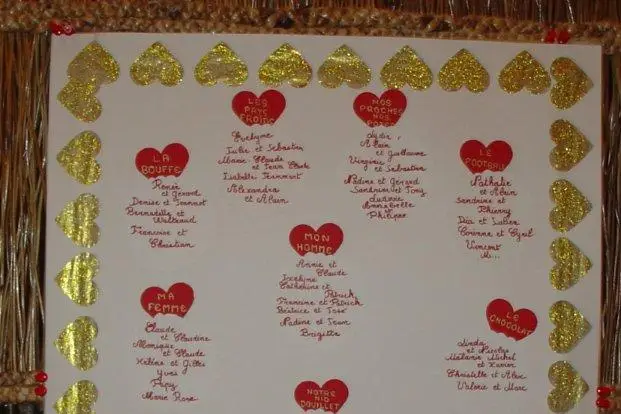 LES
PAYS
FROIDS
Evelyne
Julie et Sebastien
Marie Claude
et Jean
Isabelle
Alexandra
et Alain
NOS
PROCHES
NOS
Lydie,
Alain
et Guillaume
Virginie
et Sebastien
Nadine et Gerard
Sandrine et Tony
Ludovic
Annabelle
Philippe
LA
BOUFFE
Renée
et Gerard
Denise et Jeannot
Bernadette et
Françoise et
Christian
LE
FOOTBALL
Nathalie
et Alain
Sandrine et
Thierry
et
Corinne et Cyril
Vincent
MON
HOMME
Annie et
Claude
Jocelyne
Catherine et
Patrick
Francine et Patrick
Béatrice et José
Nadine et Jean
Brigitte
MA
FEMME
Claude
et Claudine
Monique
et Claude
Hélène et Gilles
Yves
Marie Rose
LE
CHOCOLAT
Linda
et Nicolas
Mélanie Michel
et
Christelle et
Valerie et Marc
NOTRE
NID
DOUILLET